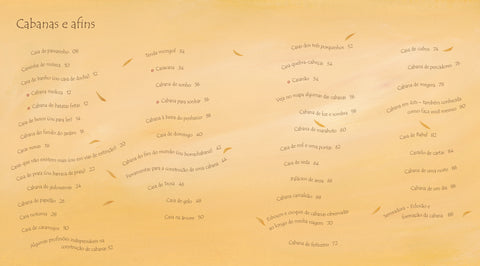 Cabanas e afins
Casa de passarinho 08
Casinha de routera 10
Casa de banho (ou casa de ducha) 12
Cabana maluca 12
Cabana de batatas fritas 12
Casa de boxes (ou por ler) 14
Cabana do fundo do poder 18
Casas novas 18
Casas que não existem mais (ou em vias de extinção) 20
Casa de praia (ou barraca de praia) 22
Cabana de galanteria 24
Cabana de papelão 26
Casa noturna 28
Casa de caramujo 30
Algumas profissões indispensáveis na
construção de cabanas 32
Tenda mongol 34
Casacana 34
Cabana do sonho 36
Cabana para sonhar 36
Cabana à beira do penhasco 38
Casa de domingo 40
Cabana do fim do mundo (ou borralheira) 42
Ferramentas para a construção de uma cabana 44
Casa da bruxa 46
Casa de gelo 48
Casa na árvore 50
Casas dos três porquinhos 52
Casa quebra-cabeças 54
Casarão 54
Veja no mapa algumas das cabanas 56
Cabana de luz e sombra 58
Cabana de marabuto 60
Casa de mil e uma portas 62
Casa de seda 64
Palácios de areia 66
Cabana camaleão 68
Esboços e croquis de cabanas observadas
ao longo de minha viagem 70
Cabana do feiticeiro 72
Casa de cubos 74
Cabana de pescadores 76
Cabana de viagem 78
Cabana em kits – também conhecida
como faça você mesmo 80
Casa de Babel 82
Castelo de cartas 84
Cabana de uma noite 86
Cabana de um dia 86
Semeadora – Eclosão e
formação da cabana 88